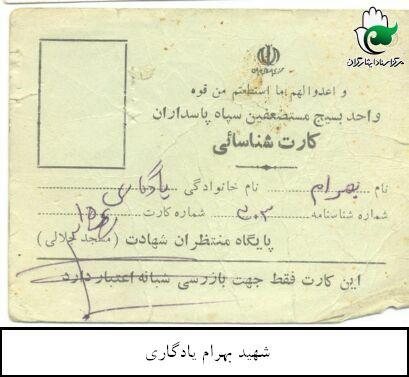 مرکز اسناد ایثارگران
جمهوری اسلامی ایران
و اعدوالهم ما استطعتم من قوه
واحد بسیج مستضعفین سپاه پاسداران
کارت شناسائی
نام بهرام نام خانوادگی یادگاری
شماره شناسنامه ۳۰۳ شماره کارت
پایگاه منتظران شهادت (مسجد جلالی)
این کارت فقط جهت بازرسی شبانه اعتبار دارد
شهید بهرام یادگاری